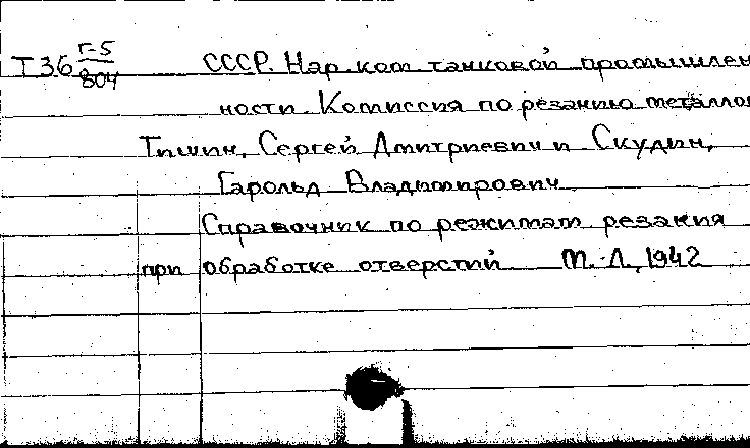 Т36 г-5/804 СССР. Нар. ком. танковой промышлен
ности. Комиссия по резанию металлов
Тишин, Сергей Дмитриевич и Скудин,
Гарольд Владимирович
Справочник по режимам резания
при обработке отверстий М.-Л., 1942